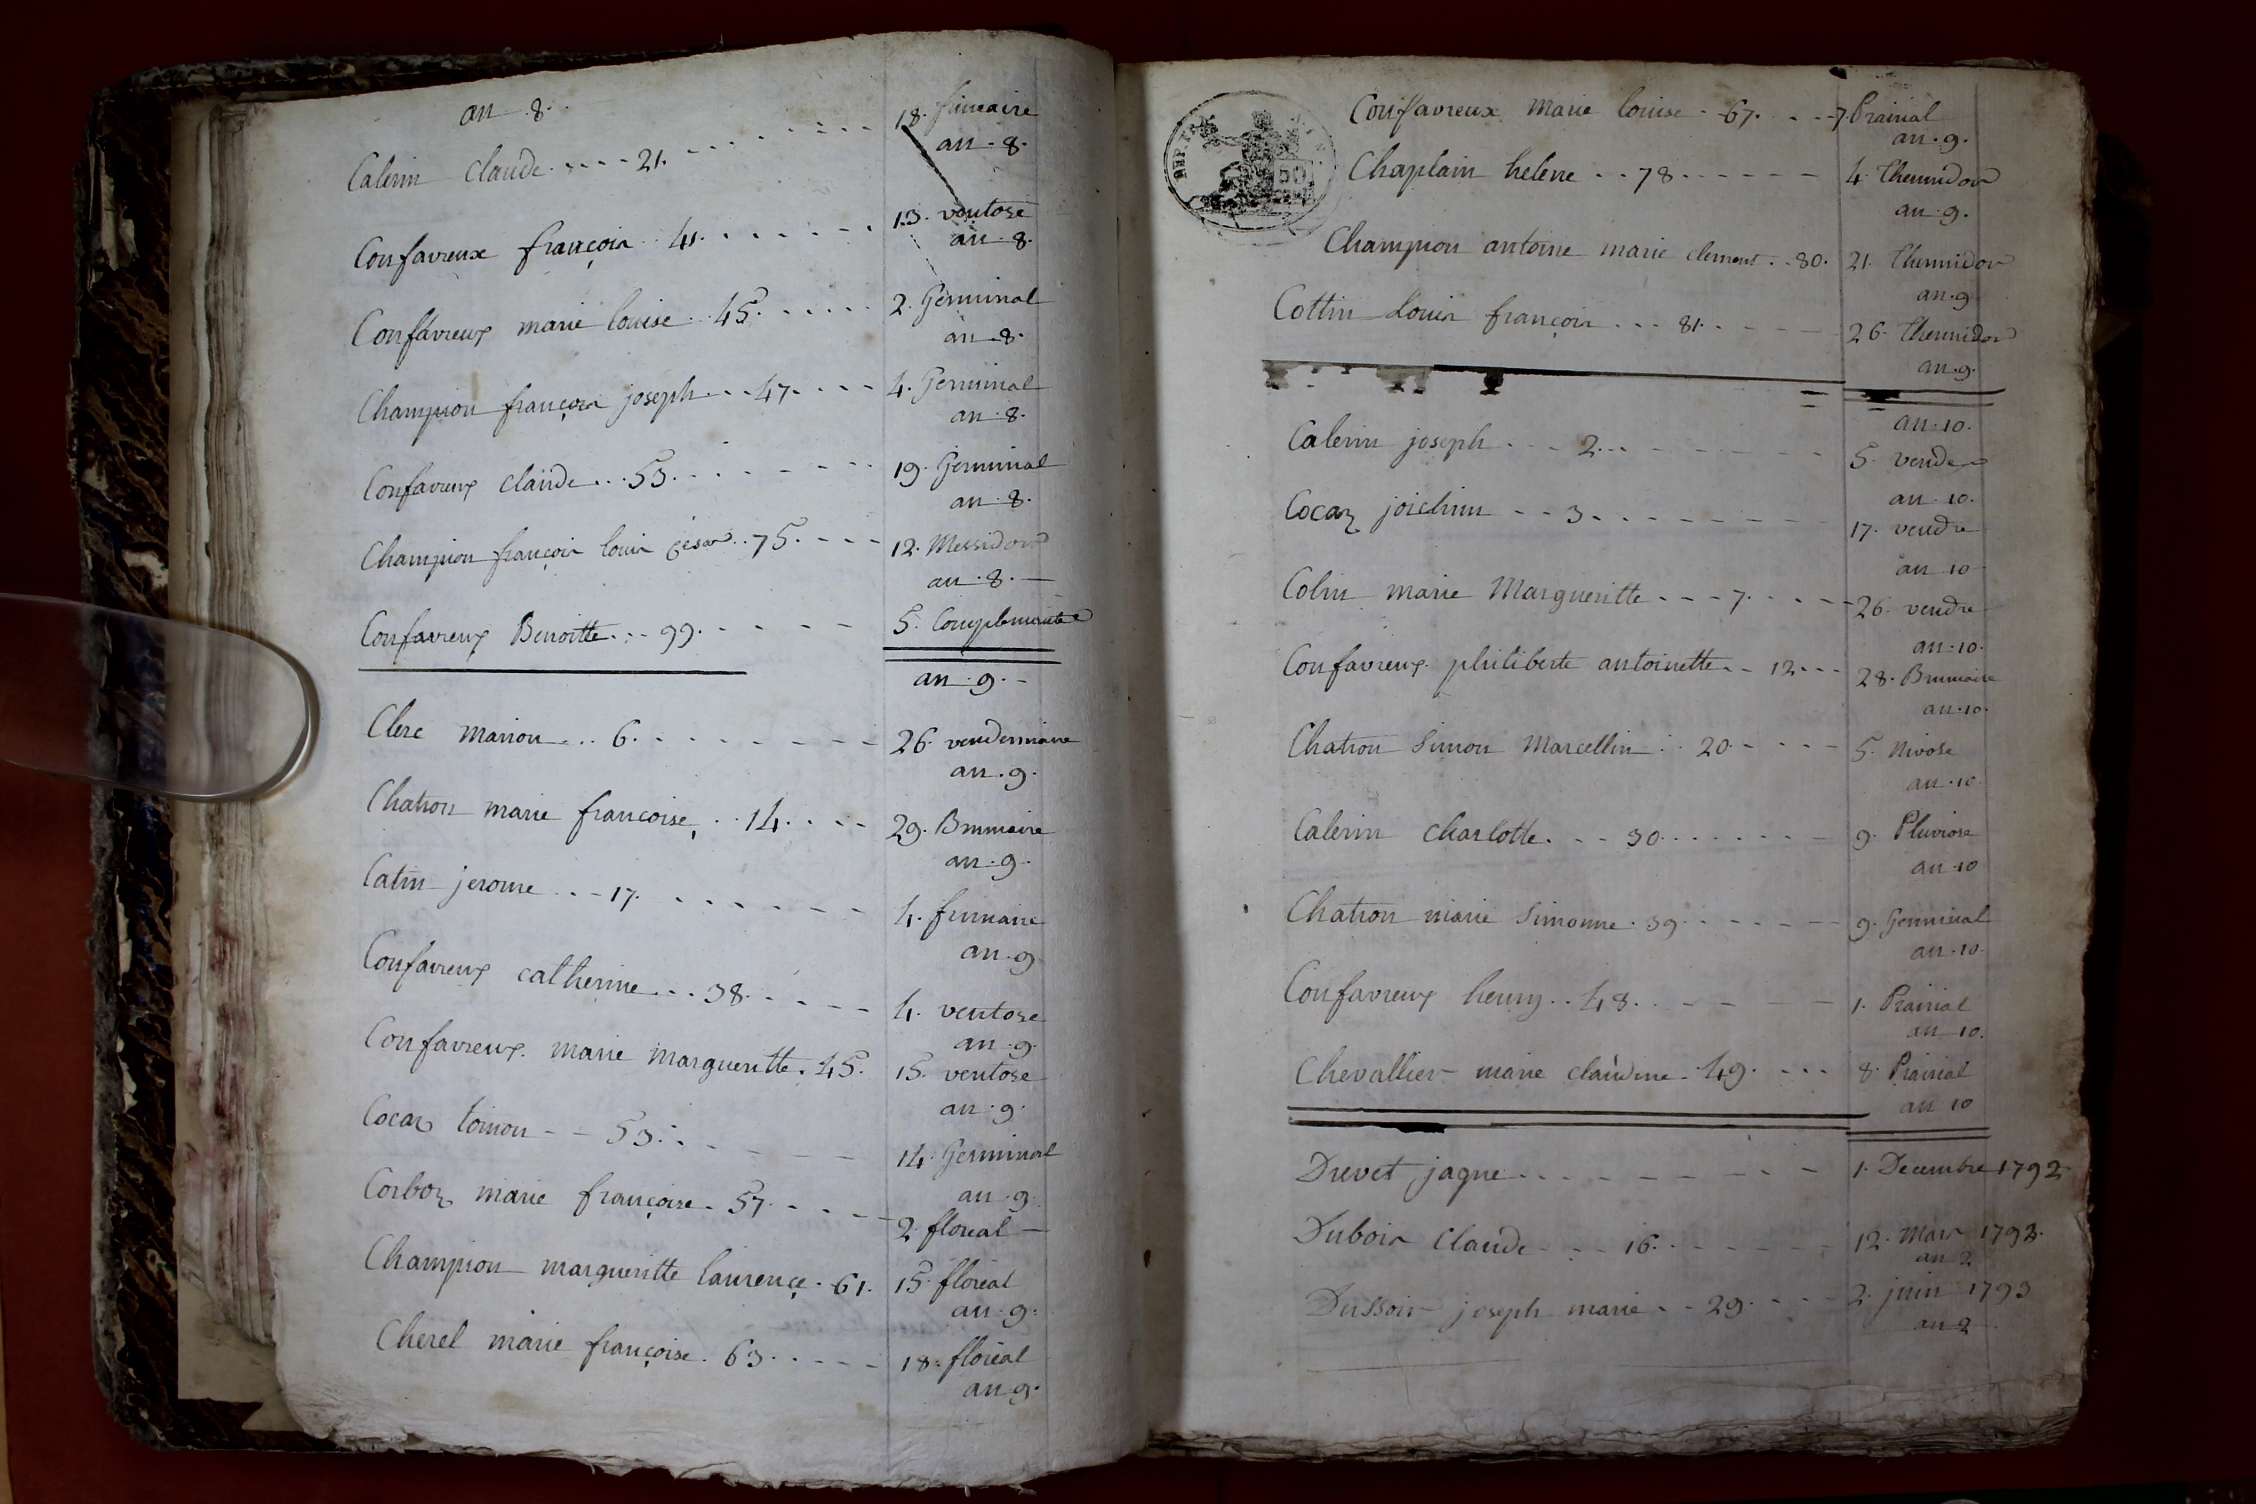 an 8.
Calerin Claude . . . . 21. . . . . . . . 18. frimaire
an . 8.
Confavreux françois . . 41. . . . . . . 13. ventose
an . 8.
Confavreux marie louise . . 45. . . . . . 2. Germinal
an . 8.
Champion françois joseph . . . 47. . . . 4. Germinal
an . 8.
Confavreux claude . . . 53. . . . . . . 19. Germinal
an . 8.
Champion françois louis cesar . . 75. . . . 12. Messidor
an . 8.
Confavreux Benoitte . . . 99. . . . . . 5. Complementre
an . 9.
Clerc marion . . . 6. . . . . . . . . 26. vendemiaire
an . 9.
Chatron marie francoise . . 14. . . . . 29. Brumaire
an . 9.
Catin jerome . . . 17. . . . . . . . 4. frimaire
an . 9.
Confavreux catherine . . . 38. . . . . . 4. ventose
an . 9.
Confavreux marie margueritte . 45. 15. ventose
an . 9.
Cocaz toinon - - 53. . . . . . . 14. Germinal
an . 9.
Corboz marie françoise . 57. . . . . 2. floreal
Champion margueritte laurençe . 61. 15. floreal
an . 9.
Cherel marie françoise . 63. . . . . 18. floreal
an . 9.
Confavreux marie louise . 67. . . . 7. Prairial
an . 9.
Chaplain helene . . 78. . . . . . 4. Thermidor
an . 9.
Champion antoine marie clement . . 80. 21. Thermidor
an . 9.
Cottin Louis françois . . . 81. . . . . 26. Thermidor
an . 9.
an . 10.
Calerin joseph . . . 2. . . . . . . . 5. vendre
an . 10.
Cocaz joichim . . . 3. . . . . . . . 17. vendre
an 10
Colin marie Margueritte . . . 7. . . . . 26. vendre
an . 10.
Confavreux philiberte antoinette . . 12. . . 28. Brumaire
an . 10.
Chatron Simon Marcellin . . 20. . . . . 5. Nivose
an . 10
Calerin charlotte . . . 30. . . . . . . 9. Pluviose
an . 10
Chatron marie Simonne . 39. . . . . . 9. Germinal
an . 10.
Confavreux henry . . 48. . . . . . 1. Prairial
an 10.
Chevallier marie claudine . 49. . . . 8. Prairial
an 10
Drevet jaque . . . . . . . . . 1. Decembre 1792
Dubois Claude . . . 16. . . . . . . 12. Mars 1793.
an 2
Dussoir joseph marie . . 29. . . . . 2. juin 1793
an 2